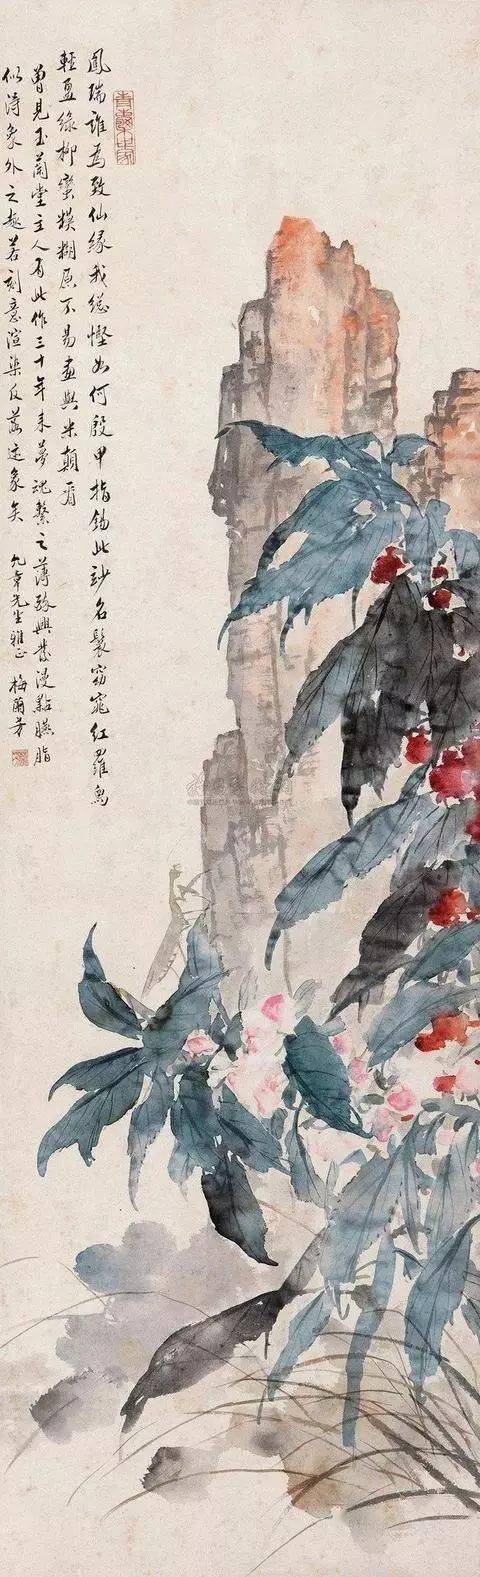 鳳瑞誰為致仙緣我總慳如何殷甲指錫此鈔名鬟窈窕紅羅鳥
輕盈綠柳蠻模糊原不易畫與米顛看
曾見玉蘭堂主人有此作三十年來夢魂繫之薄醉興發漫點臙脂
似海象外之趣若刻意渲染反落迹象矣
九章先生雅正 梅蘭芳